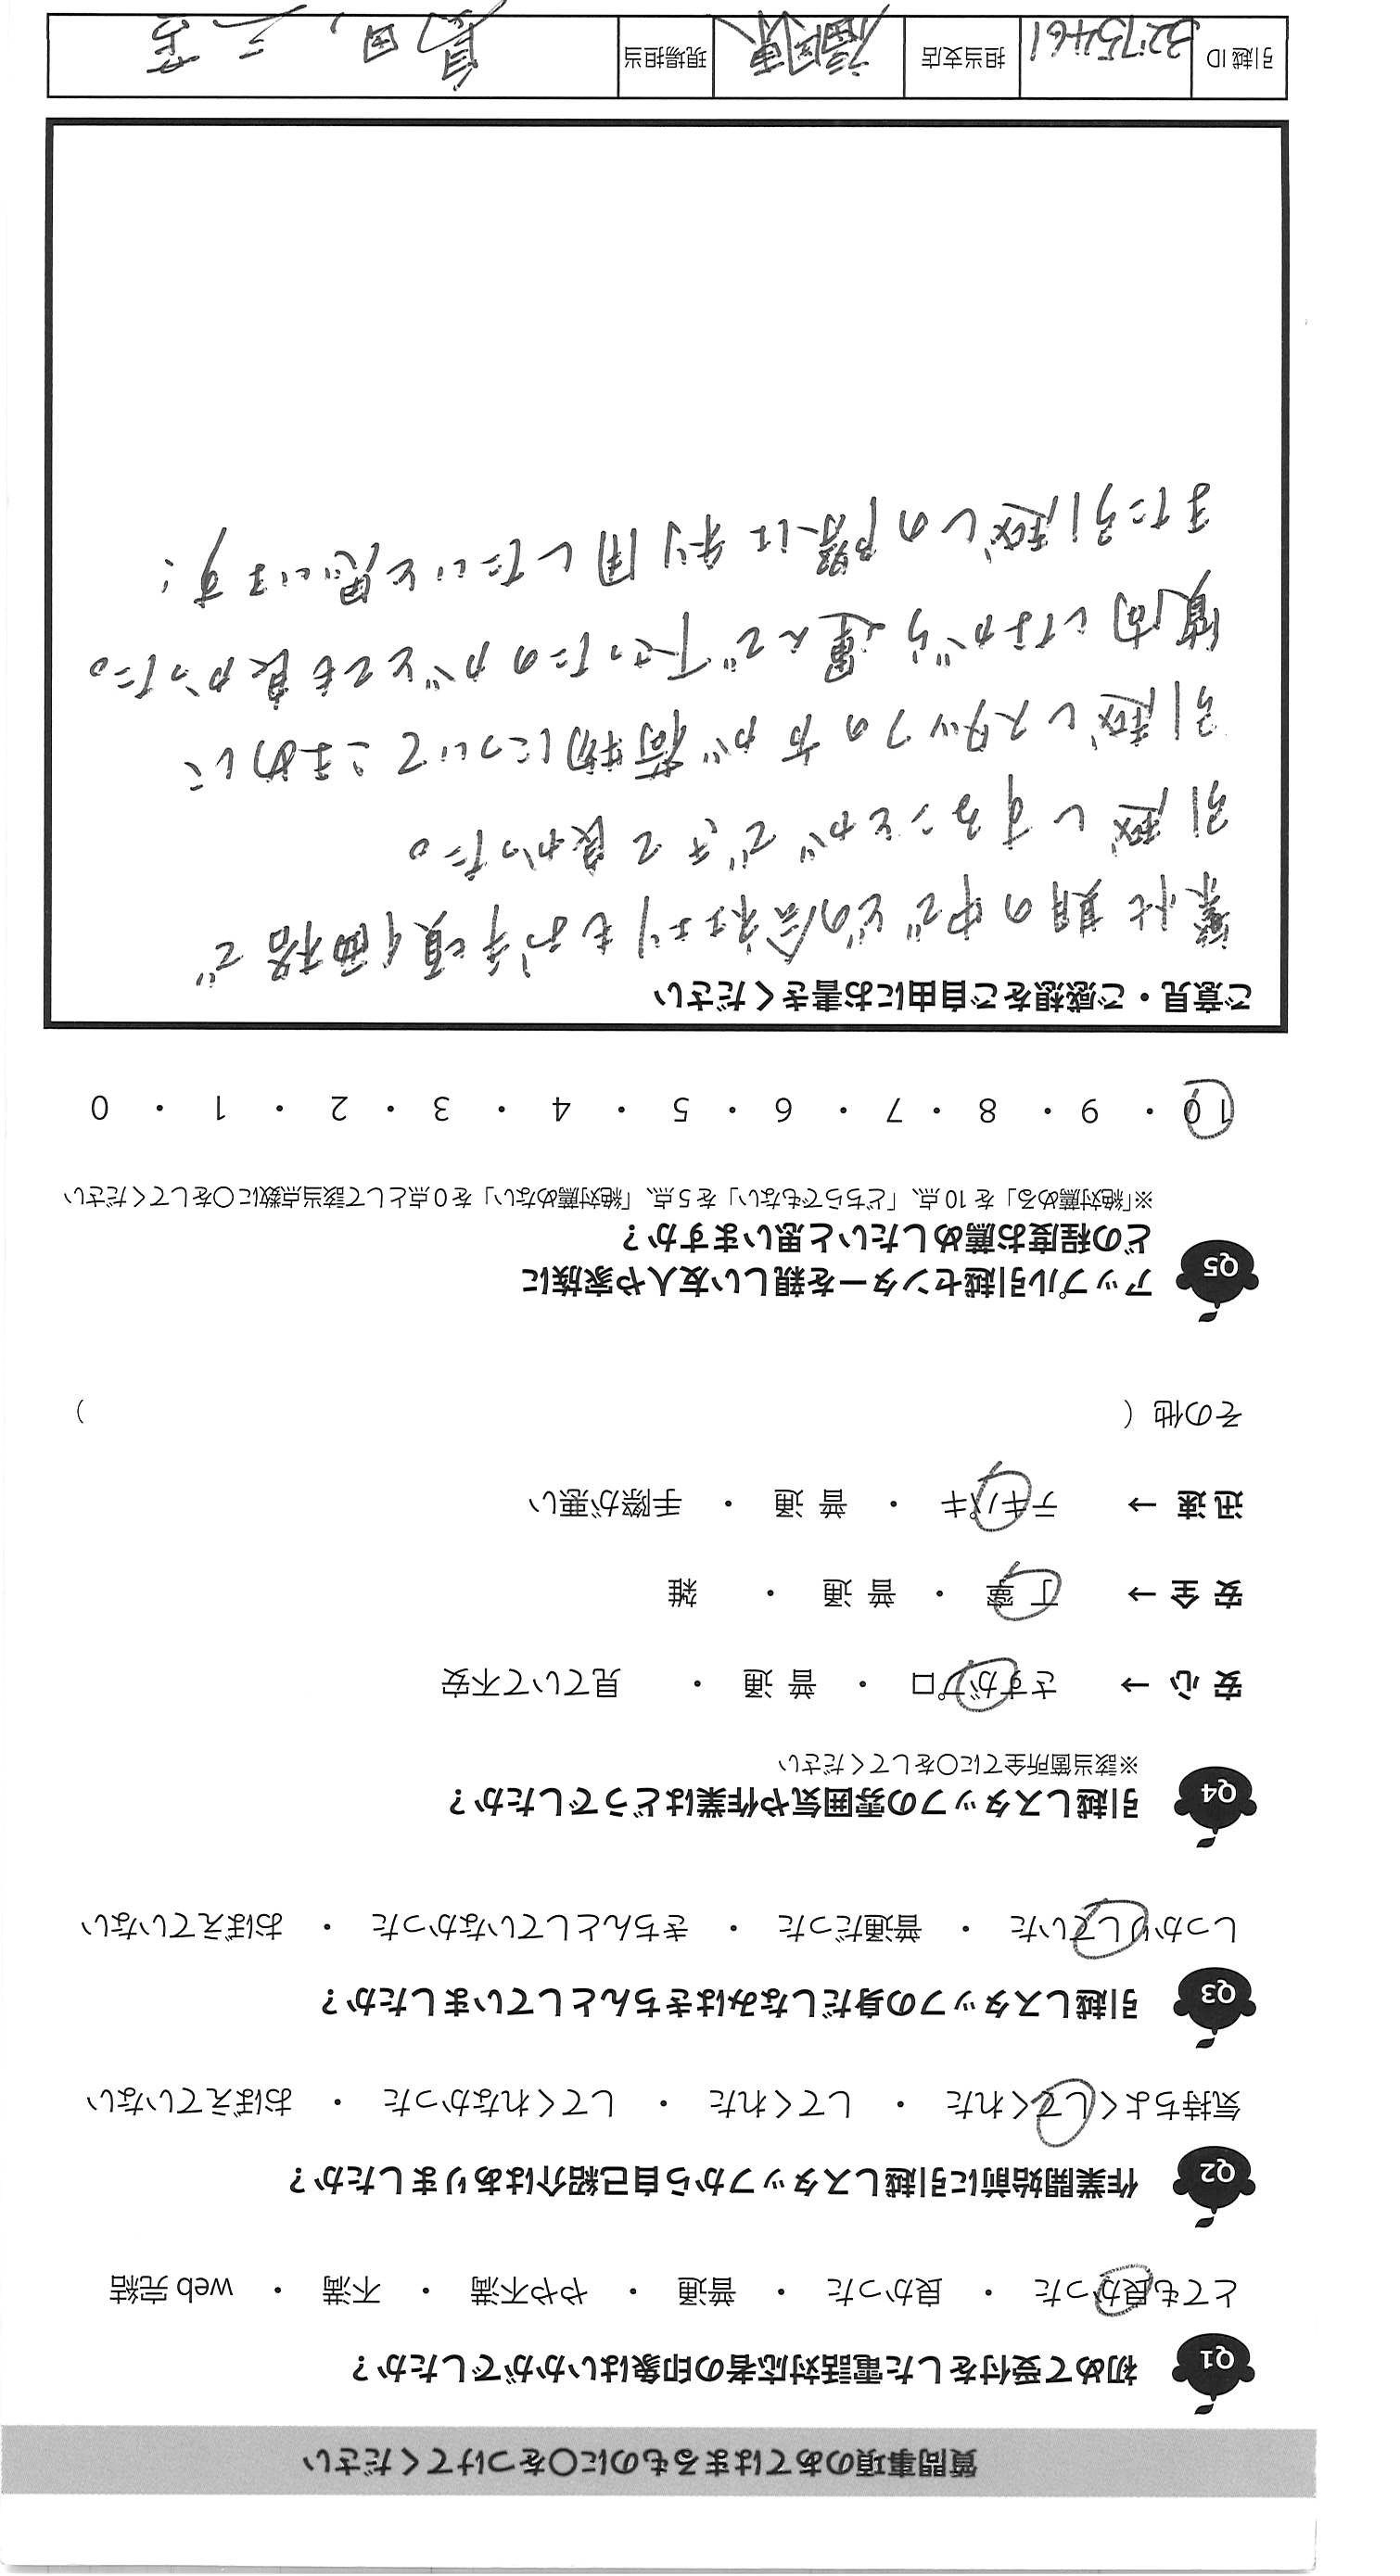 質問事項のあてはまるものに○をつけてください
Q1 初めて受付をした電話対応者の印象はいかがでしたか？
とても良かった ・ 良かった ・ 普通 ・ やや不満 ・ 不満 ・ web 完結
Q2 作業開始前に引越しスタッフから自己紹介はありましたか？
気持ちよくしてくれた ・ してくれた ・ してくれなかった ・ おぼえていない
Q3 引越しスタッフの身だしなみはきちんとしていましたか？
しっかりしていた ・ 普通だった ・ きちんとしていなかった ・ おぼえていない
Q4 引越しスタッフの雰囲気や作業はどうでしたか？
※該当箇所全てに○をしてください
安心→ さすがプロ ・ 普通 ・ 見ていて不安
安全→ 丁寧 ・ 普通 ・ 雑
迅速→ テキパキ ・ 普通 ・ 手際が悪い
その他（ ）
Q5 アップル引越センターを親しい友人や家族に
どの程度お薦めしたいと思いますか？
※「絶対薦める」を 10 点、「どちらでもない」を 5 点、「絶対薦めない」を 0 点として該当点数に○をしてください
10 ・ 9 ・ 8 ・ 7 ・ 6 ・ 5 ・ 4 ・ 3 ・ 2 ・ 1 ・ 0
ご意見・ご感想をご自由にお書きください
繁忙期の中でどの会社よりもお手頃価格で
引越しすることができて良かった。
引越しスタッフの方が荷物についてこまめに
質問しながら運んで下さったのがとても良かった。
また引越しの際は利用したいと思います!
引越 ID 32275461 担当支店 福岡東 現場担当